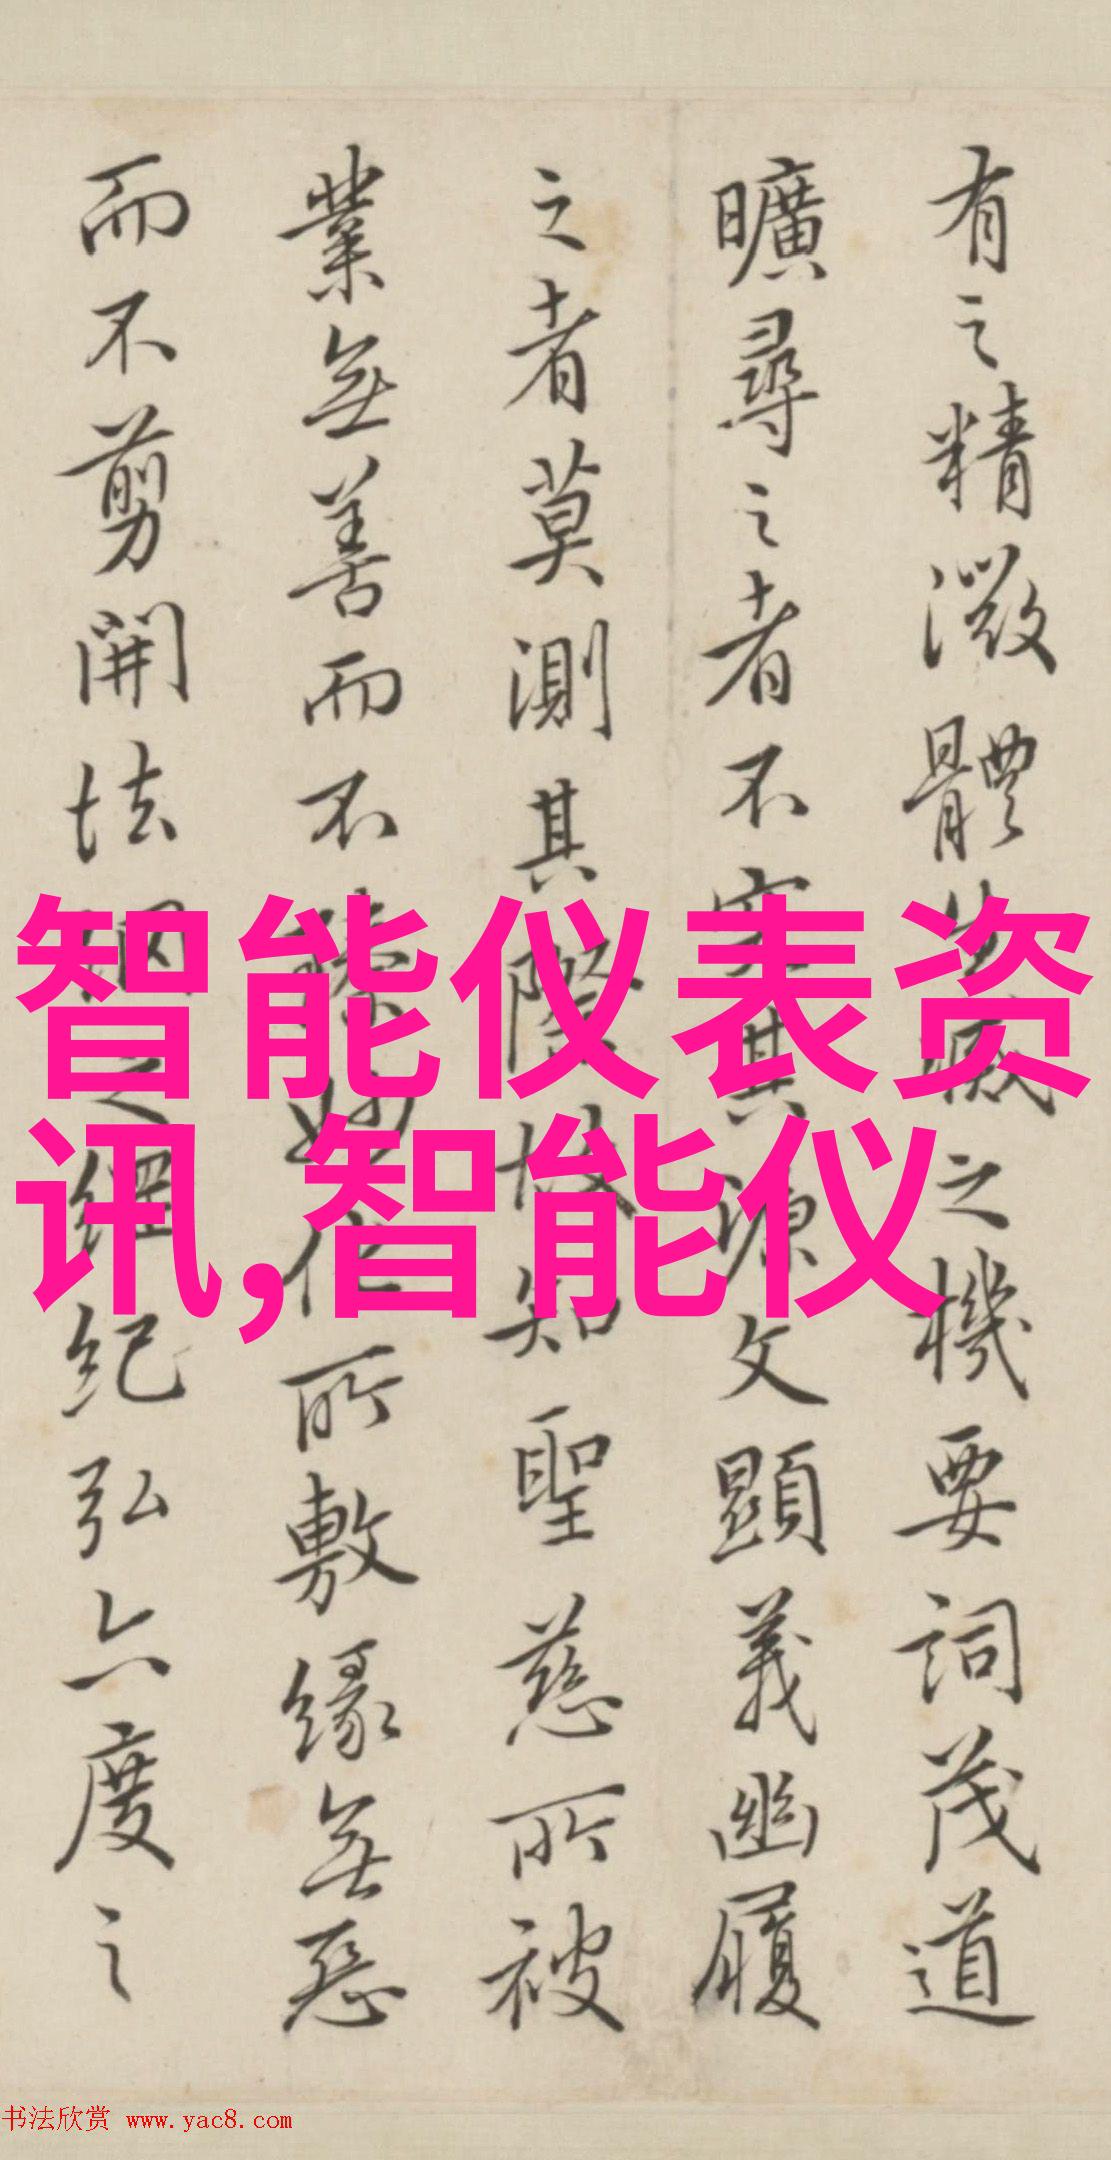 有之精微體生滅之機要詞茂道
曠尋之者不究其源文顯義幽履
之者莫測其際故知聖慈所被
業無善而不臻妙化所敷緣無惡
而不剪開法網之綱紀弘六度之
智能仪表资
讯,智能仪
书法欣赏 www.yac8.com